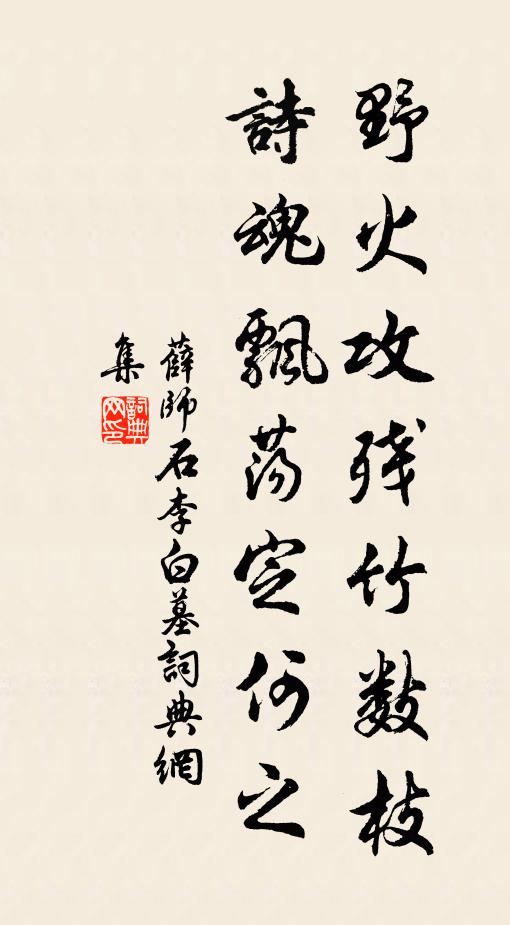 野火攻残竹数枝
詩魂飄荡定何之
薛师石李白墓詞典網
集
詞典网印